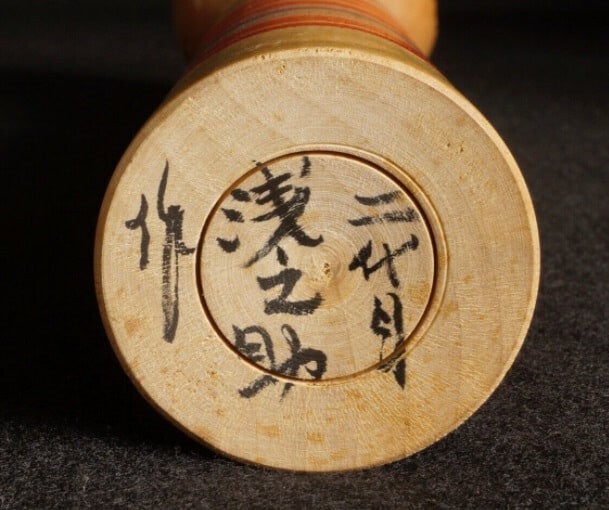 二代目
浅之助
作